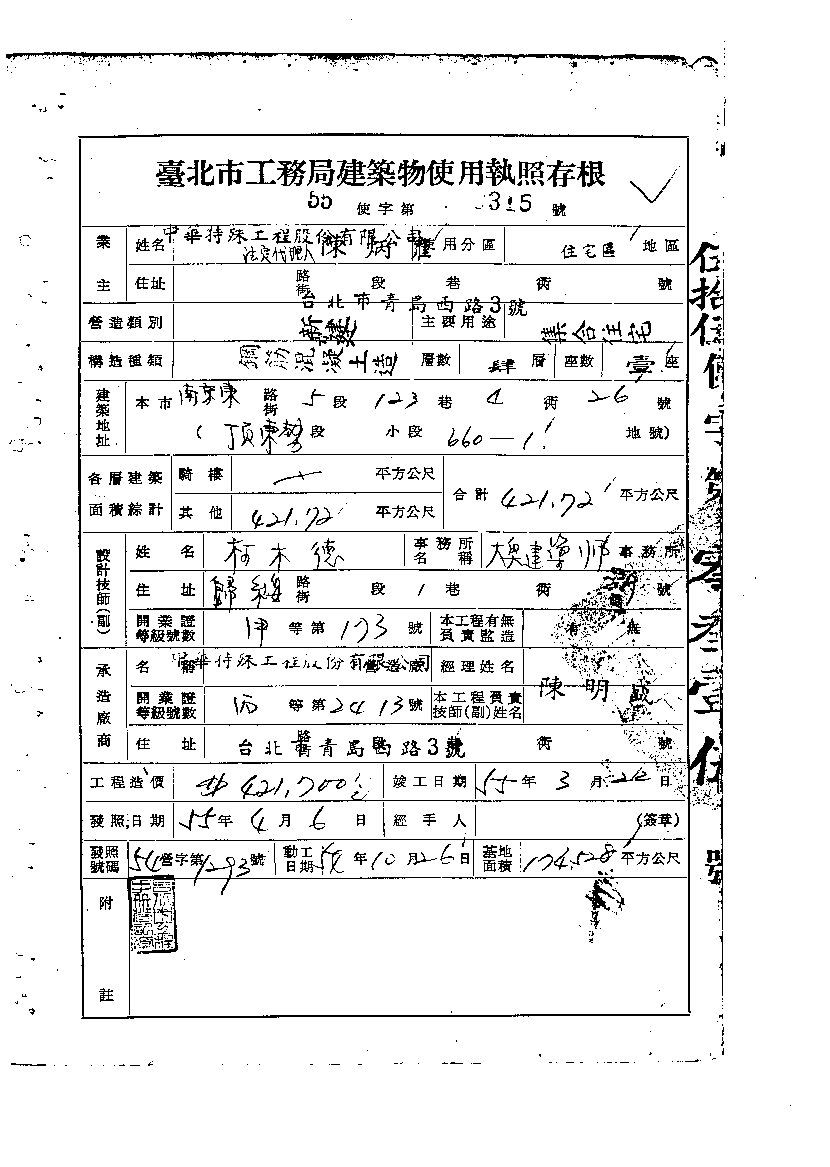 臺北市工務局建築物使用執照存根
55 使字第 0315 號
業主 姓名 中華特殊工程股份有限公司 法定代理人 陳炳 使用分區 住宅區 地區
住址 路街 段 巷 衖 號
台北市青島西路3號
營造類別 新建 主要用途 集合住宅
構造種類 鋼筋混凝土造 層數 肆 層 座數 壹 座
建築地址 本市 南京東 路街 5 段 123 巷 4 衖 26 號
( 頂東勢 段 小段 660-1 地號)
各層建築面積綜計 騎樓 — 平方公尺 合計 421.72 平方公尺
其他 421.72 平方公尺
設計技師(副) 姓名 柯木德 事務所名稱 建築師事務所
住址 歸綏 路街 段 1 巷 衖 號
開業證等級號數 甲 等第 173 號 本工程有無負責監造 有 無
承造廠商 名稱 中華特殊工程股份有限公司 營造廠 經理姓名 陳明
開業證等級號數 丙 等第 2413 號 本工程負責技師(副)姓名
住址 台北市青島西路3號 路街 段 巷 衖 號
工程造價 421,700 竣工日期 55 年 3 月 日
發照日期 55 年 4 月 6 日 經手人 (簽章)
發照號碼 54 營字第 1293 號 動工日期 54 年 10 月 26 日 基地面積 174.528 平方公尺
附註
伍拾伍使字第零叁壹伍號